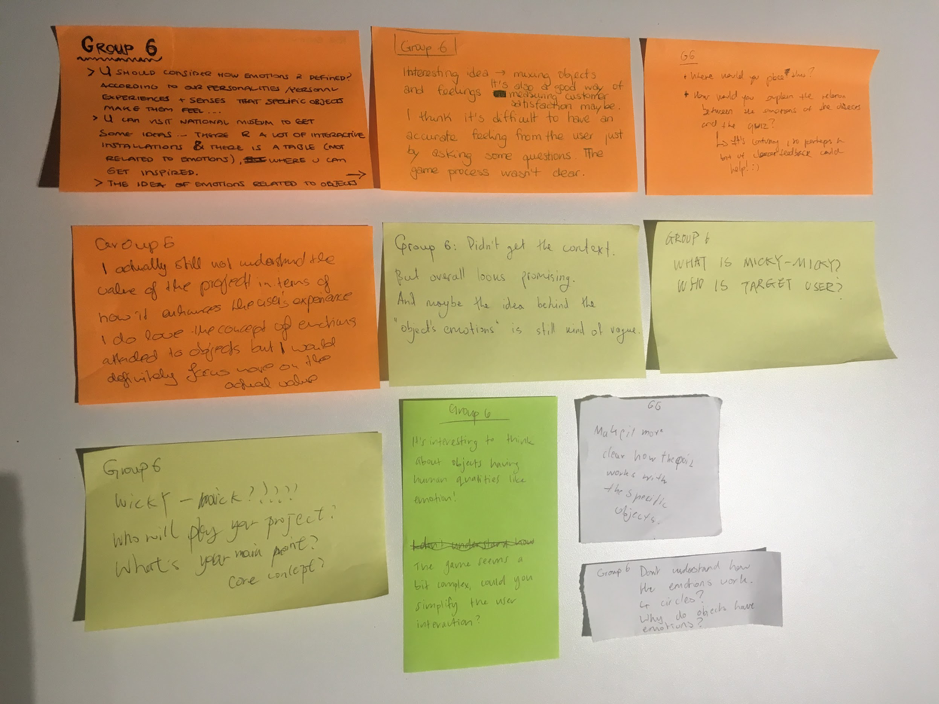 GROUP 6
> U SHOULD CONSIDER HOW EMOTIONS R DEFINED?
ACCORDING TO OUR PERSONALITIES / PERSONAL
EXPERIENCES + SENSES THAT SPECIFIC OBJECTS
MAKE THEM FEEL...
> U CAN VISIT NATIONAL MUSEUM TO GET
SOME IDEAS... THERE R A LOT OF INTERACTIVE
INSTALLATIONS & THERE IS A TABLE (NOT
RELATED TO EMOTIONS), WHERE U CAN
GET INSPIRED. →
> THE IDEA OF EMOTIONS RELATED TO OBJECTS
Group 6
Interesting idea → mixing objects
and feelings It's also a good way of
measuring customer
satisfaction maybe.
I think it's difficult to have an
accurate feeling from the user just
by asking some questions The
game process wasn't clear.
G6
Where would you place this?
How would you explain the relation
between the emotions of the objects
and the quiz?
bit of feedback could
help! :)
Group 6
I actually still not understand the
value of the project in terms of
how it enhances the users experience
I do love the concept of emotions
attached to objects but I would
definitely focus more on the
actual value
Group 6: Didn't get the context.
But overall looks promising.
And maybe the idea behind the
"object's emotions" is still kind of vague.
GROUP 6
WHAT IS MICKY-MICKY?
WHO IS TARGET USER?
Group 6
Who will play your project?
What's your main point?
core concept?
Group 6
It's interesting to think
about objects having
human qualities like
emotion!
I didn't understand how
The game seems a
bit complex, could you
simplify the user
interaction?
G6
Make it more
clear how the
works with
the specific
objects.
Group 6 Dont understand how
the emotions work.
4 circles?
Why do objects have
emotions?